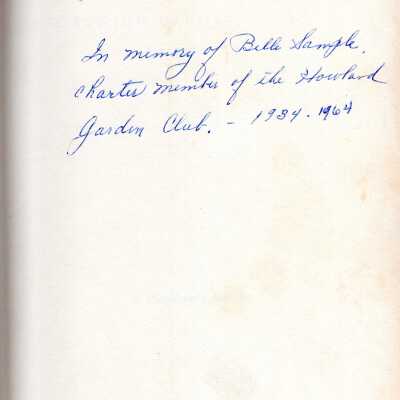 In memory of Belle Sample,
charter member of the Howland
Garden Club. - 1934 - 1964